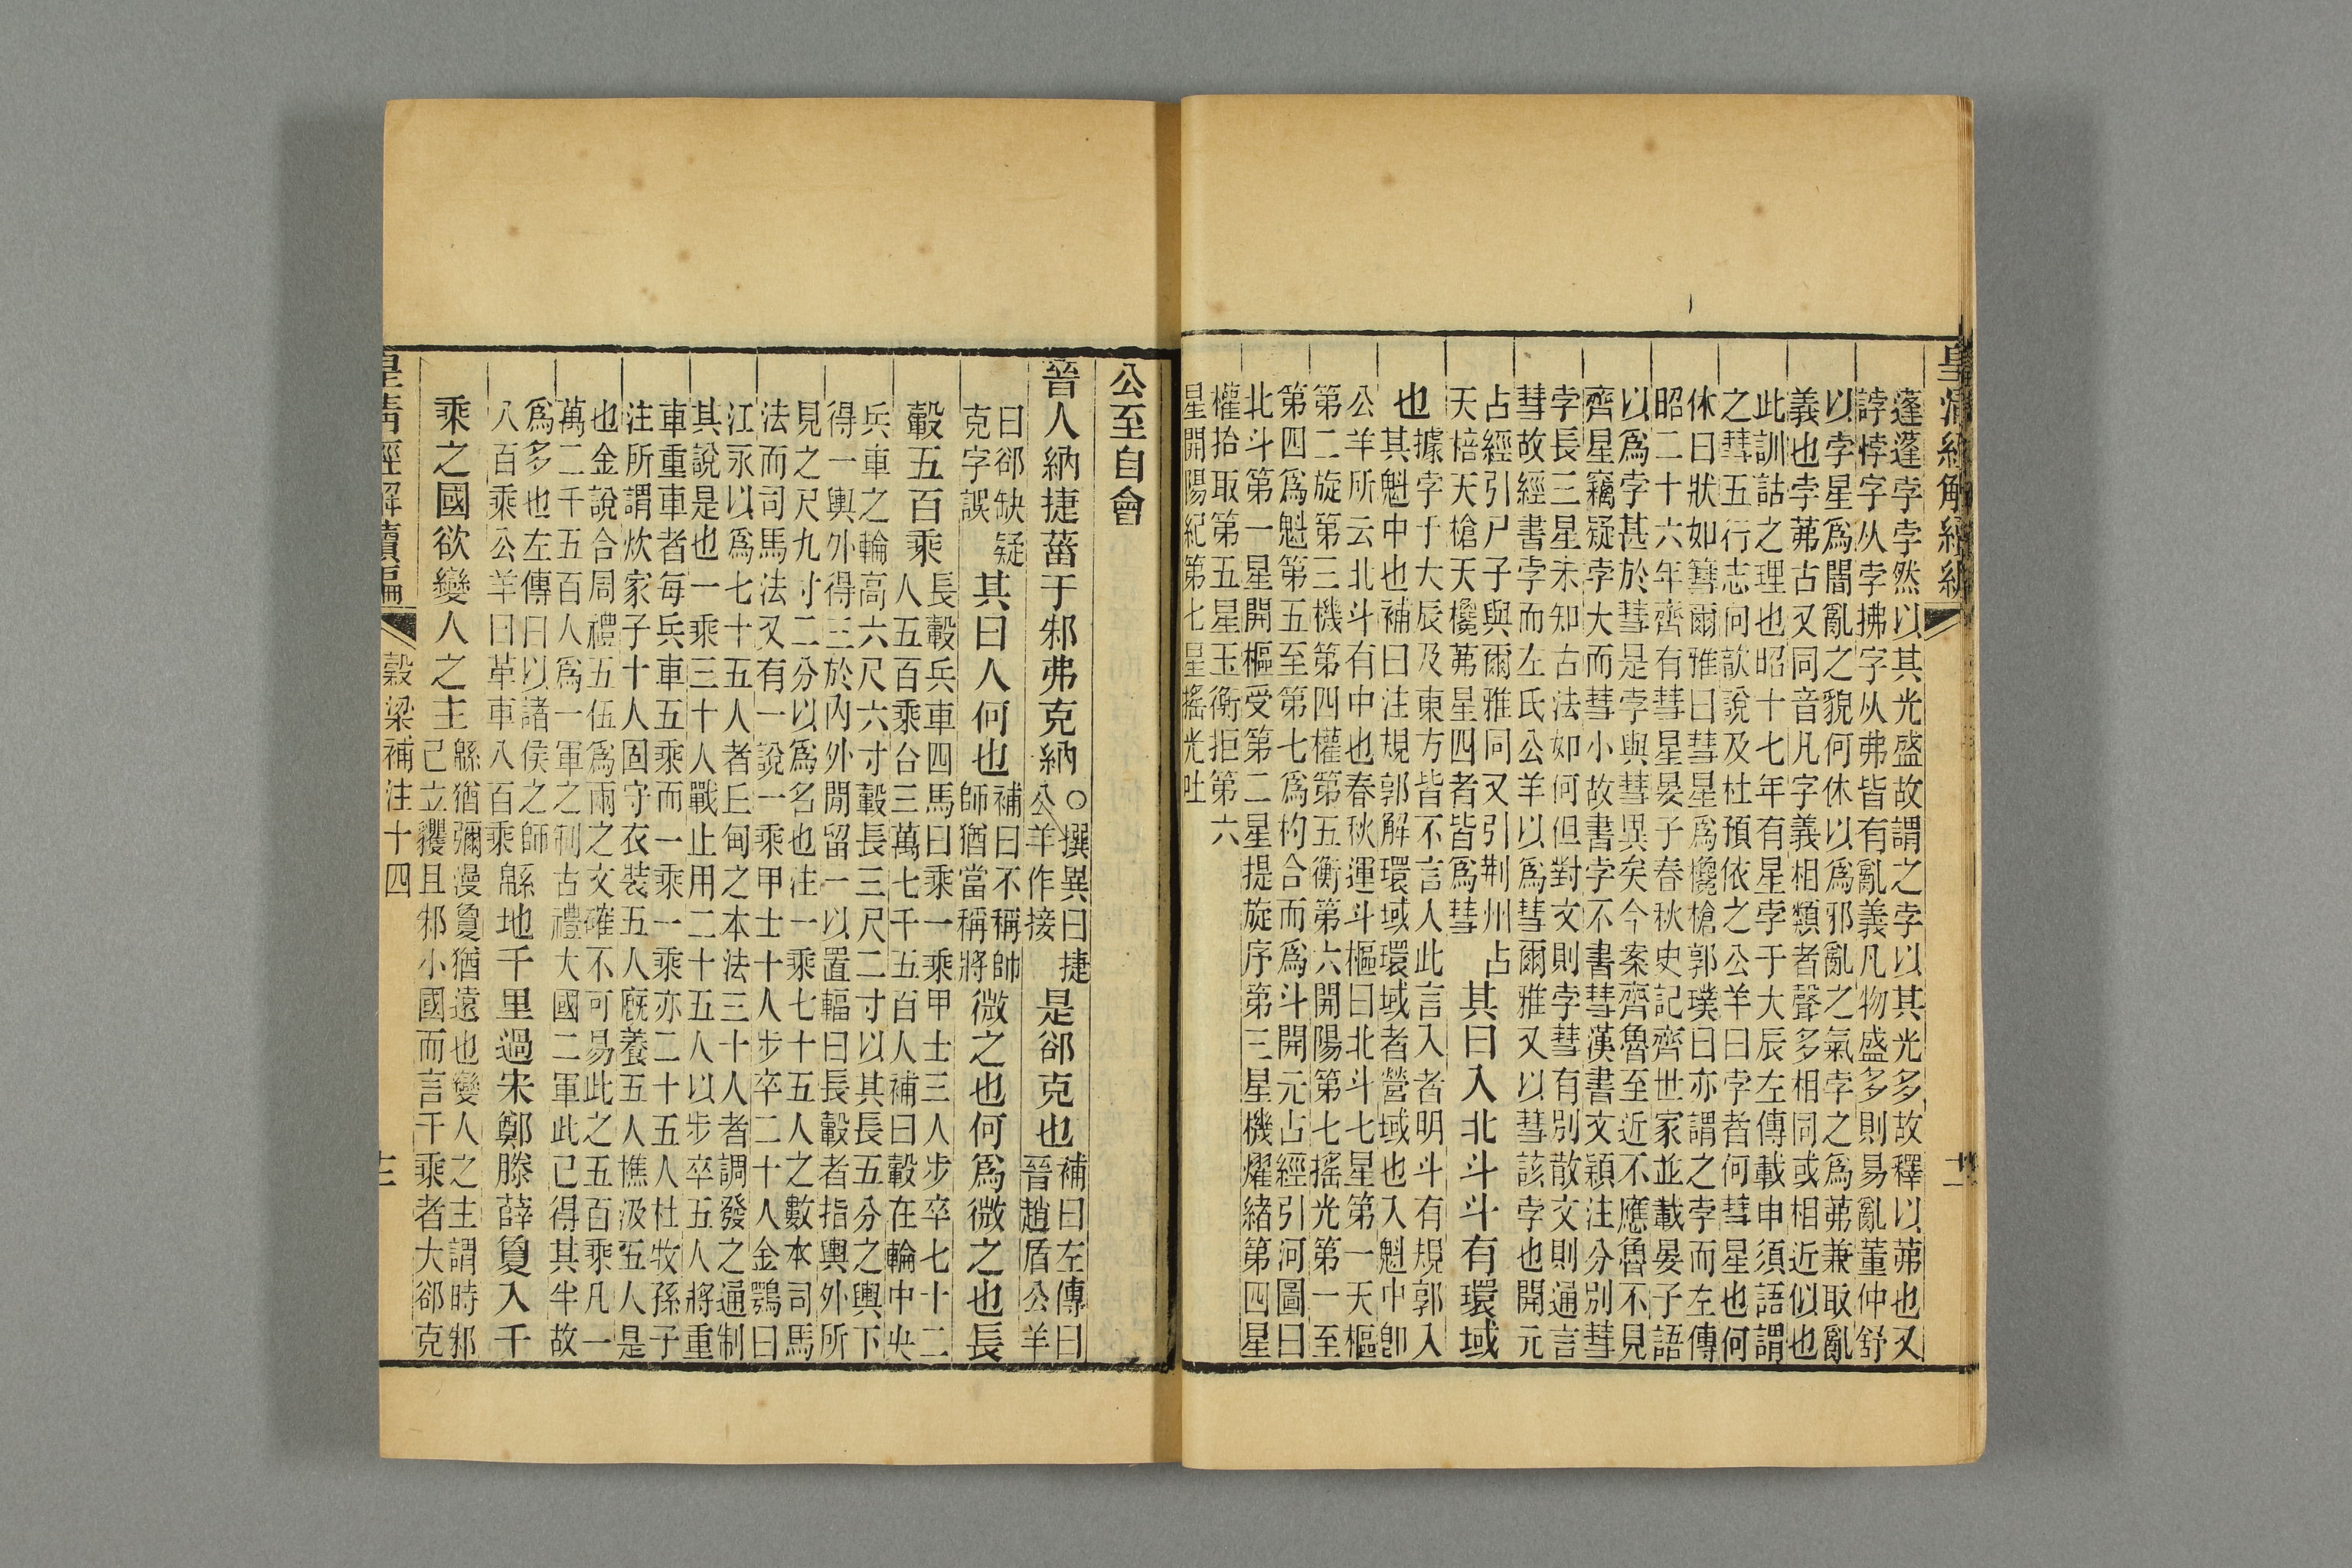 皇清經解續編
十一
蓬蓬孛孛然以其光盛故謂之孛以其光多故釋以茀也又
誖悖字从孛拂字从弗皆有亂義凡物盛多則易亂董仲舒
以孛星爲闇亂之貌何休以爲邪亂之氣孛之爲茀兼取亂
義也孛茀古又同音凡字義相類者聲多相同或相近似也
此訓詁之理也昭十七年有星孛于大辰左傳載申須語謂
之彗五行志向歆說及杜預依之公羊曰孛者何彗星也何
休曰狀如篲爾雅曰彗星爲欃槍郭璞曰亦謂之孛而左傳
昭二十六年齊有彗星晏子春秋史記齊世家並載晏子語
以爲孛甚於彗是孛與彗異矣今案齊魯至近不應魯不見
齊星竊疑孛大而彗小故書孛不書彗漢書文穎注分別彗
孛長三星未知古法如何但對文則孛彗有別散文則通言
彗故經書孛而左氏公羊以爲彗爾雅又以彗該孛也開元
占經引尸子與爾雅同又引荆州占
天棓天槍天欃茀星四者皆爲彗
其曰入北斗斗有環域
也
據孛于大辰及東方皆不言入此言入者明斗有規郭入
其魁中也補曰注規郭解環域環域者營域也入魁中卽
公羊所云北斗有中也春秋運斗樞曰北斗七星第一天樞
第二旋第三機第四權第五衡第六開陽第七搖光第一至
第四爲魁第五至第七爲杓合而爲斗開元占經引河圖曰
北斗第一星開樞受第二星提旋序第三星機燿緒第四星
權拾取第五星玉衡拒第六
星開陽紀第七星搖光吐
公至自會
晉人納捷菑于邾弗克納
○撰異曰捷
公羊作接
是郤克也
補曰左傳曰
晉趙盾公羊
曰郤缺疑
克字誤
其曰人何也
補曰不稱帥
師猶當稱將
微之也何爲微之也長
轂五百乘
長轂兵車四馬曰乘一乘甲士三人步卒七十二
人五百乘合三萬七千五百人補曰轂在輪中央
兵車之輪高六尺六寸轂長三尺二寸以其長五分之輿下
得一輿外得三於內外閒留一以置輻曰長轂者指輿外所
見之尺九寸二分以爲名也注一乘七十五人之數本司馬
法而司馬法又有一說一乘甲士十人步卒二十人金鶚曰
江永以爲七十五人者丘甸之本法三十人者調發之通制
其說是也一乘三十人戰止用二十五人以步卒五人將重
車重車者每兵車五乘而一乘一乘亦二十五人杜牧孫子
注所謂炊家子十人固守衣裝五人廄養五人樵汲五人是
也金說合周禮五伍爲兩之文確不可易此之五百乘凡一
萬二千五百人爲一軍之制古禮大國二軍此已得其半故
爲多也左傳曰以諸侯之師
八百乘公羊曰革車八百乘
緜地千里過宋鄭滕薛敻入千
乘之國欲變人之主
緜猶彌漫敻猶遠也變人之主謂時邾
已立貜且邾小國而言千乘者大郤克
皇清經解續編
穀梁補注十四